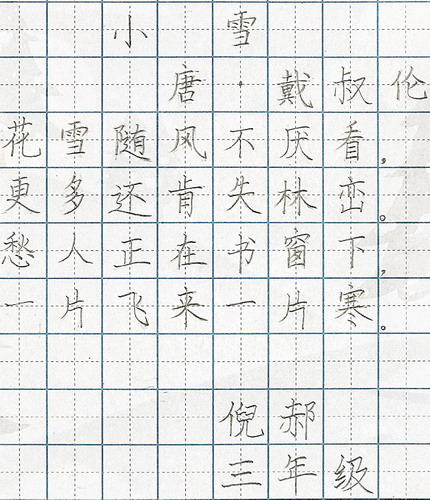 小雪
唐·戴叔伦
花雪随风不厌看，
更多还肯失林峦。
愁人正在书窗下，
一片飞来一片寒。
倪郝
三年级